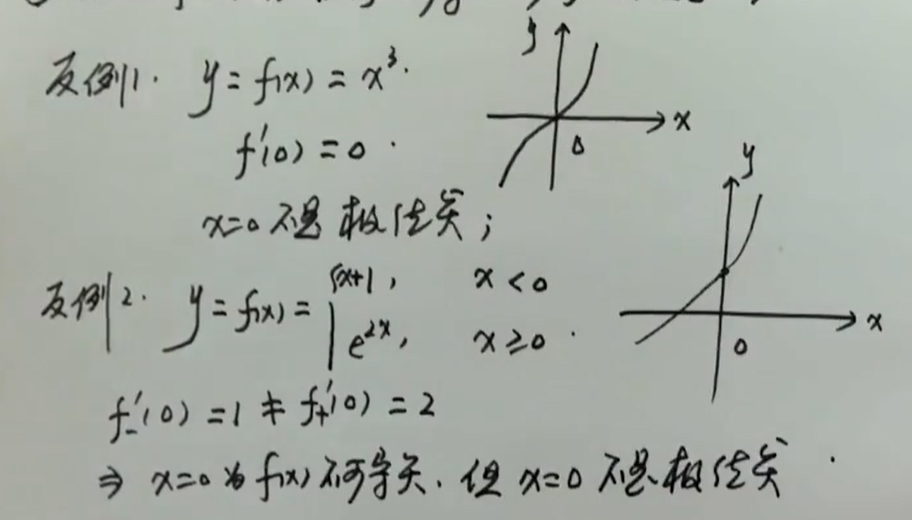 反例1. y = f(x) = x³.
f'(0) = 0.
x=0 不是极值点;
反例2. y = f(x) = { x+1, x < 0
e^{2x}, x ≥ 0.
f'₋(0) = 1 ≠ f'₊(0) = 2
⇒ x=0 为 f(x) 不可导点. 但 x=0 不是极值点.
y
x
0
y
x
0